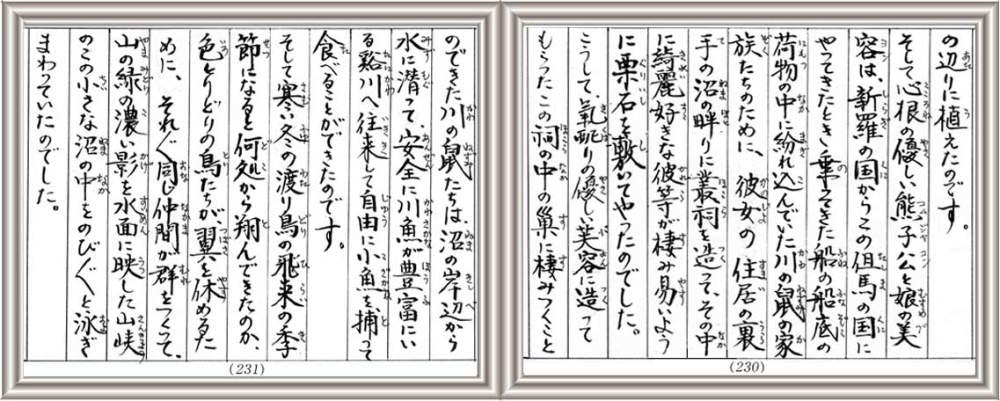 の辺りに植えたのです。
そして、心根の優しい熊子公と娘の美
容は、新羅の国からこの但馬の国に
やってきたとき乗ってきた船の船底の
荷物の中に紛れ込んでいた川の鼠の家
族たちのために、彼女の住居の裏
手の沼の畔りに叢祠を造って、その中
に綺麗好きな彼等が棲み易いよう
に栗石を敷いてやったのでした。
こうして、気配りの優しい美容に造って
もらったこの祠の中の巣に棲みつくこと
(230)
のできた川の鼠たちは、沼の岸辺から
水に潜って、安全に川魚が豊富にい
る谿川へ往来して自由に小魚を捕って
食べることができたのです。
そして寒い冬の渡り鳥の飛来の季
節になると何処から翔んできたのか、
色とりどりの鳥たちが翼を休めるた
めに、それぞれ同じ仲間が群をつくって、
山の緑の濃い影を水面に映した山峡
のこの小さな沼の中をのびのびと泳ぎ
まわっていたのでした。
(231)